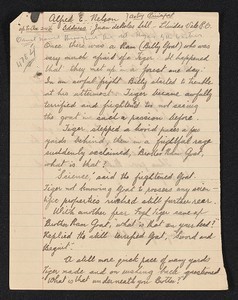 Alfred E. Nelson
Once there was a Ram (Billy Goat) who was
very much afraid of a Tiger. It happened
that they met in a forest one day.
In an awful fright Billy started to tremble
at his uttermost. Tiger became awfully
terrified and frightened too, not seeing
the goat in such a position before.
Tiger stepped a hundred paces a few
yards behind, then in a frightful rage
suddenly exclaimed, Brother Ram Goat,
what is that?
"Science," said the frightened Goat.
Tiger not knowing Goat to possess any scien-
tific properties rushed still further rear.
With another fear Tiger
Brother Ram Goat, what is that on your head?
Replied the still terrified Goat, "Sword and
A still more quick pace of many yards
Tiger made and on looking back questioned
"What is that underneath you Brother?"